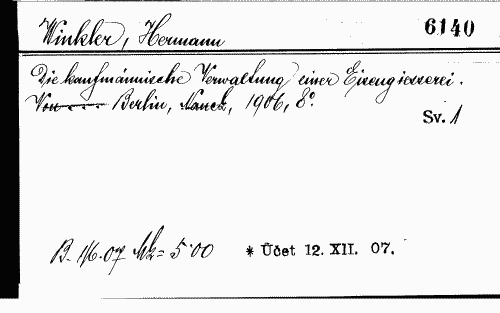 Winkler, Hermann 6140
Die kaufmännische Verwaltung einer Eisengiesserei.
Von - - - Berlin, Nauck, 1906, 8°.
Sv. 1
B. 1/6.07 Mk = 5·00 * Účet 12. XII. 07.